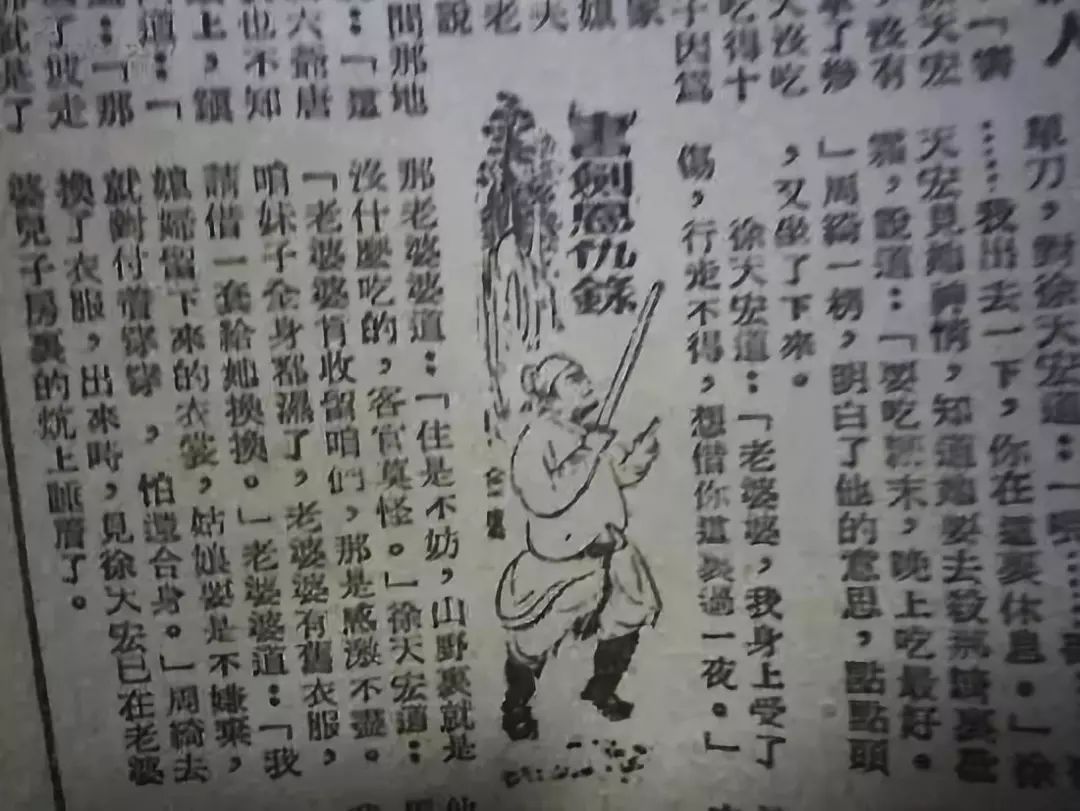 人
「響
天宏
沒有
了參
沒吃
吃得十
子因爲
老
說
間那地
：「還
六爺唐
也不知
上，鎮
道：「
：「那
是了
單刀，對徐天宏道：「
……我出去一下，你在這裏休息。」徐
天宏見她神情，知道她要去殺
霜，說道：「要吃，晚上吃最好。
」周綺一楞，明白了他的意思，點點頭
，又坐了下來。
徐天宏道：「老婆婆，我身上受了
傷，行走不得，想借你這裏過一夜。」
書劍恩仇錄
那老婆婆道：「住是不妨，山野裏就是
沒什麼吃的，客官莫怪。」徐天宏道：
「老婆婆肯收留咱們，那是感激不盡。
咱妹子全身都濕了，老婆婆有舊衣服，
請借一套給她換換。」老婆婆道：「我
媳婦留下來的衣裳，姑娘要是不嫌棄，
就對付着穿穿，怕還合身。」周綺去
換了衣服，出來時，見徐天宏已在老婆
婆兒子房裏的炕上睡着了。